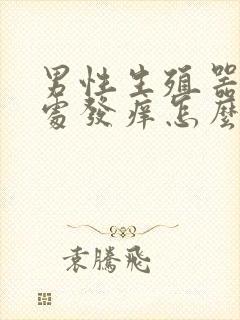 男性生殖器
處發痒怎麼
袁騰飛